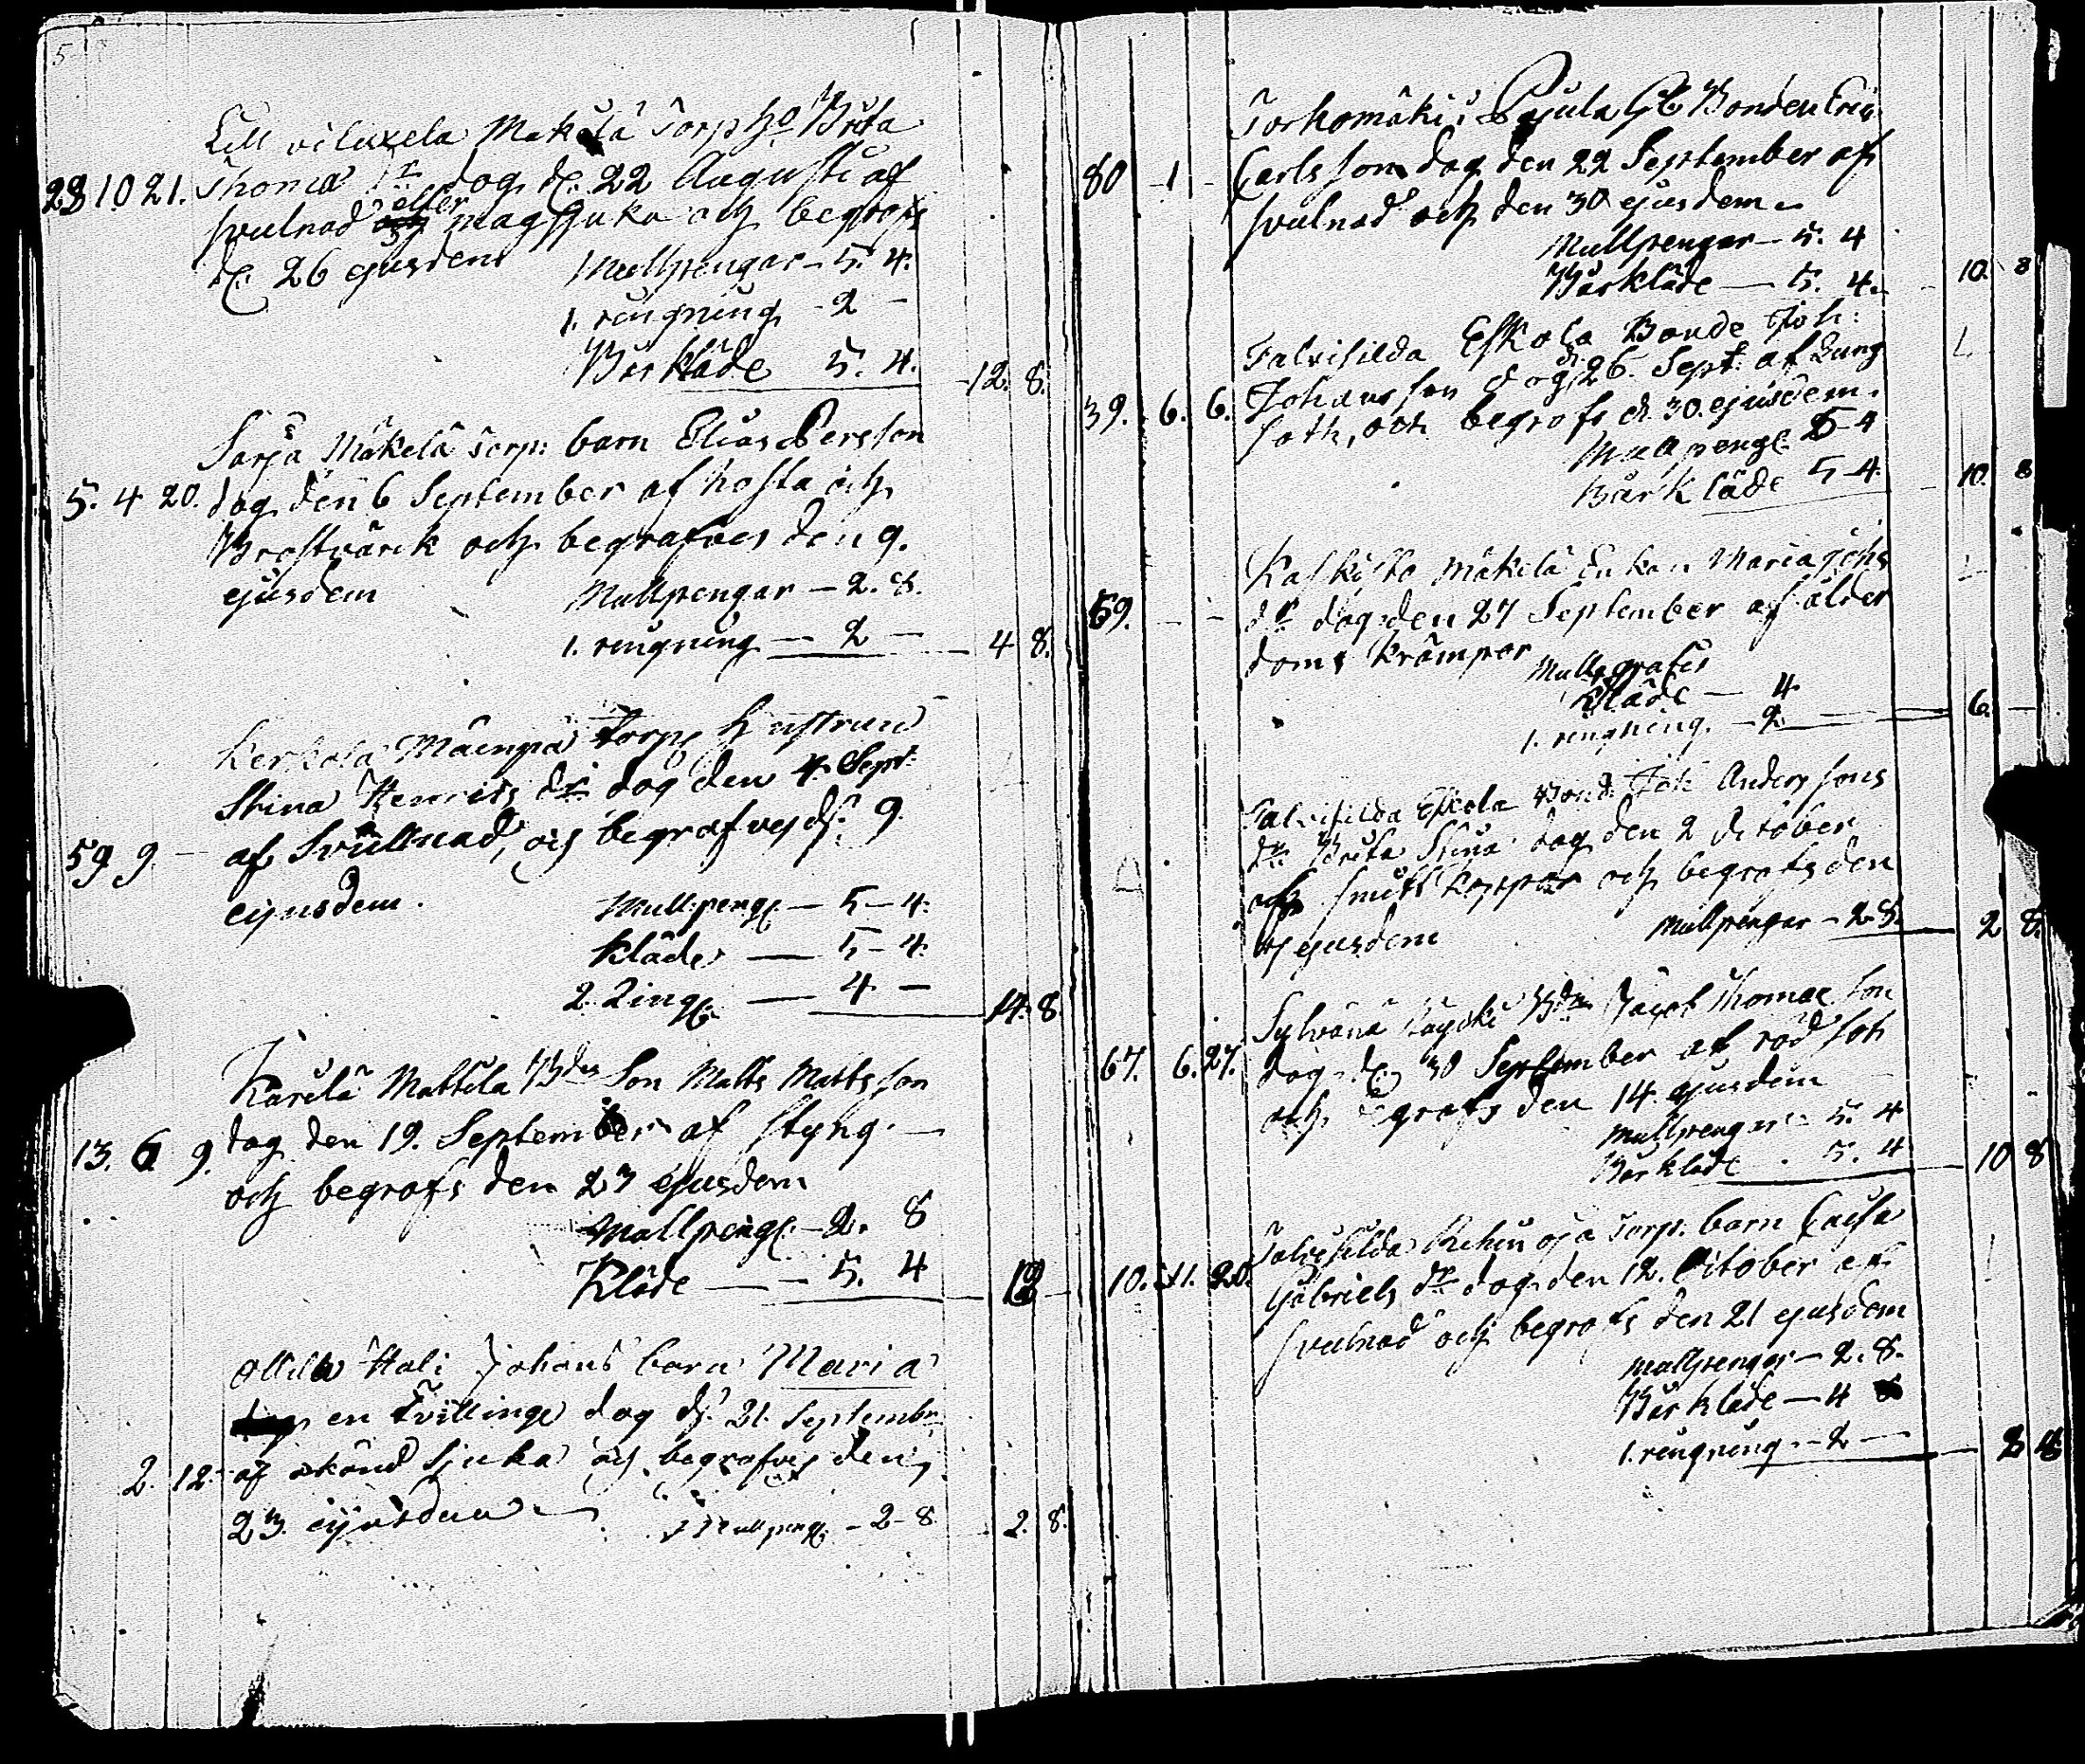 Lill viluxela Mäkelä Torp ho Brita
28 10 21. Thomæ dr dog d. 22 Augusti af
svulnad eller magsjuka och begrofs
d. 26 ejusdem Mullpengar - 5. 4.
1. ringning - 2 -
Bårkläde 5. 4. - 12. 8.
Sarja Mäkelä Torp: barn Elias Persson
5. 4 20. dog den 6 September af hosta och
Bröstvärck och begrafves den 9.
ejusdem Mullpengar - 2. 8.
1. ringning - 2 - 4 8.
Kerkola Mäenpä Torp Hustrun
Stina Henrics dr dog den 4. Sept.
59 9 - af Svullnad, och begrafves d. 9
ejusdem. Mullpeng - 5 - 4.
kläde - 5 - 4.
2. Ring - 4 - 14. 8
Karila Mattila Bdes Son Matts Mattsson
13. 6 9. dog den 19. September af styng. -
och begrofs den 23 ejusdem
Mullpeng - 2. 8
Kläde - 5. 4
Ollila Hali Johans barn Maria
en Tvillinge dog d. 21. Septembr
2. 12. af okänd Sjuka och begrafves den
23. ejusdem Mullpeng - 2 - 8 2. 8.
Torkomäki Pyula Gb Bonden Eric
80 - 1 - Carlsson dog den 22 September af
svulnad och den 30 ejusdem
Mullpengar - 5. 4
Bårkläde - 5. 4. - 10. 8
Talvisilda Eskola Bonde Joh:
39. 6. 6. Johansson dog d. 26. Sept. af Lung
soth, och begrofs d. 30. ejusdem.
Mullpeng. 5 - 4
Bårkläde 5 - 4. 10. 8
Kaskisto Mäkilä Enkan Maria Johs
69. - - dr dog den 27 September af ålder
doms krämpor
Kläde - 4
1. ringning. - 2 - 6. -
Talvisilda Eskola Bond. Joh Anderssons
dr Brita Stina dog den 2 October
af Smitt koppor och begrofs den
ejusdem Mullpengar - 2. 8. 2 8.
Sylvänä Bdn Jacob Thomæ son
67. 6. 27. dog d. 30 September af röd sot
och begrofs den 14 ejusdem
Mullpengar - 5. 4
Bårkläde - 5. 4 - 10 8
Talvisilda Rehin oja Torp. barn Caisa
10. 11. 20. Gabriels dr dog den 12. October af
svulnad och begrofs den 21 ejusdem
Mullpengar - 2. 8.
Bårkläde - 4
1. ringning. - 2 -